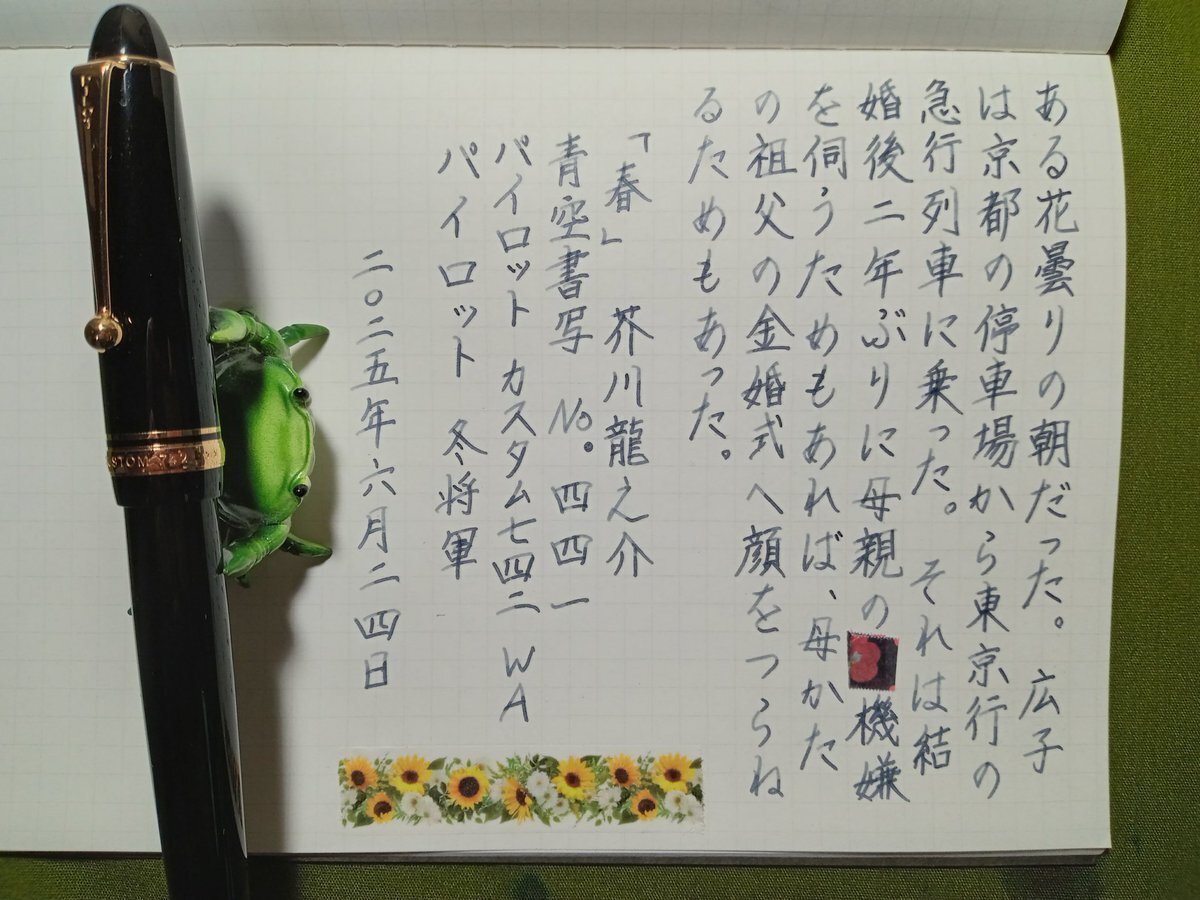 ある花曇りの朝だった。広子
は京都の停車場から東京行の
急行列車に乗った。それは結
婚後二年ぶりに母親の機嫌
を伺うためもあれば、母かた
の祖父の金婚式へ顔をつらね
るためもあった。
「春」 芥川龍之介
青空書写 No.四四一
パイロット カスタム七四二 WA
パイロット 冬将軍
二〇二五年六月二四日